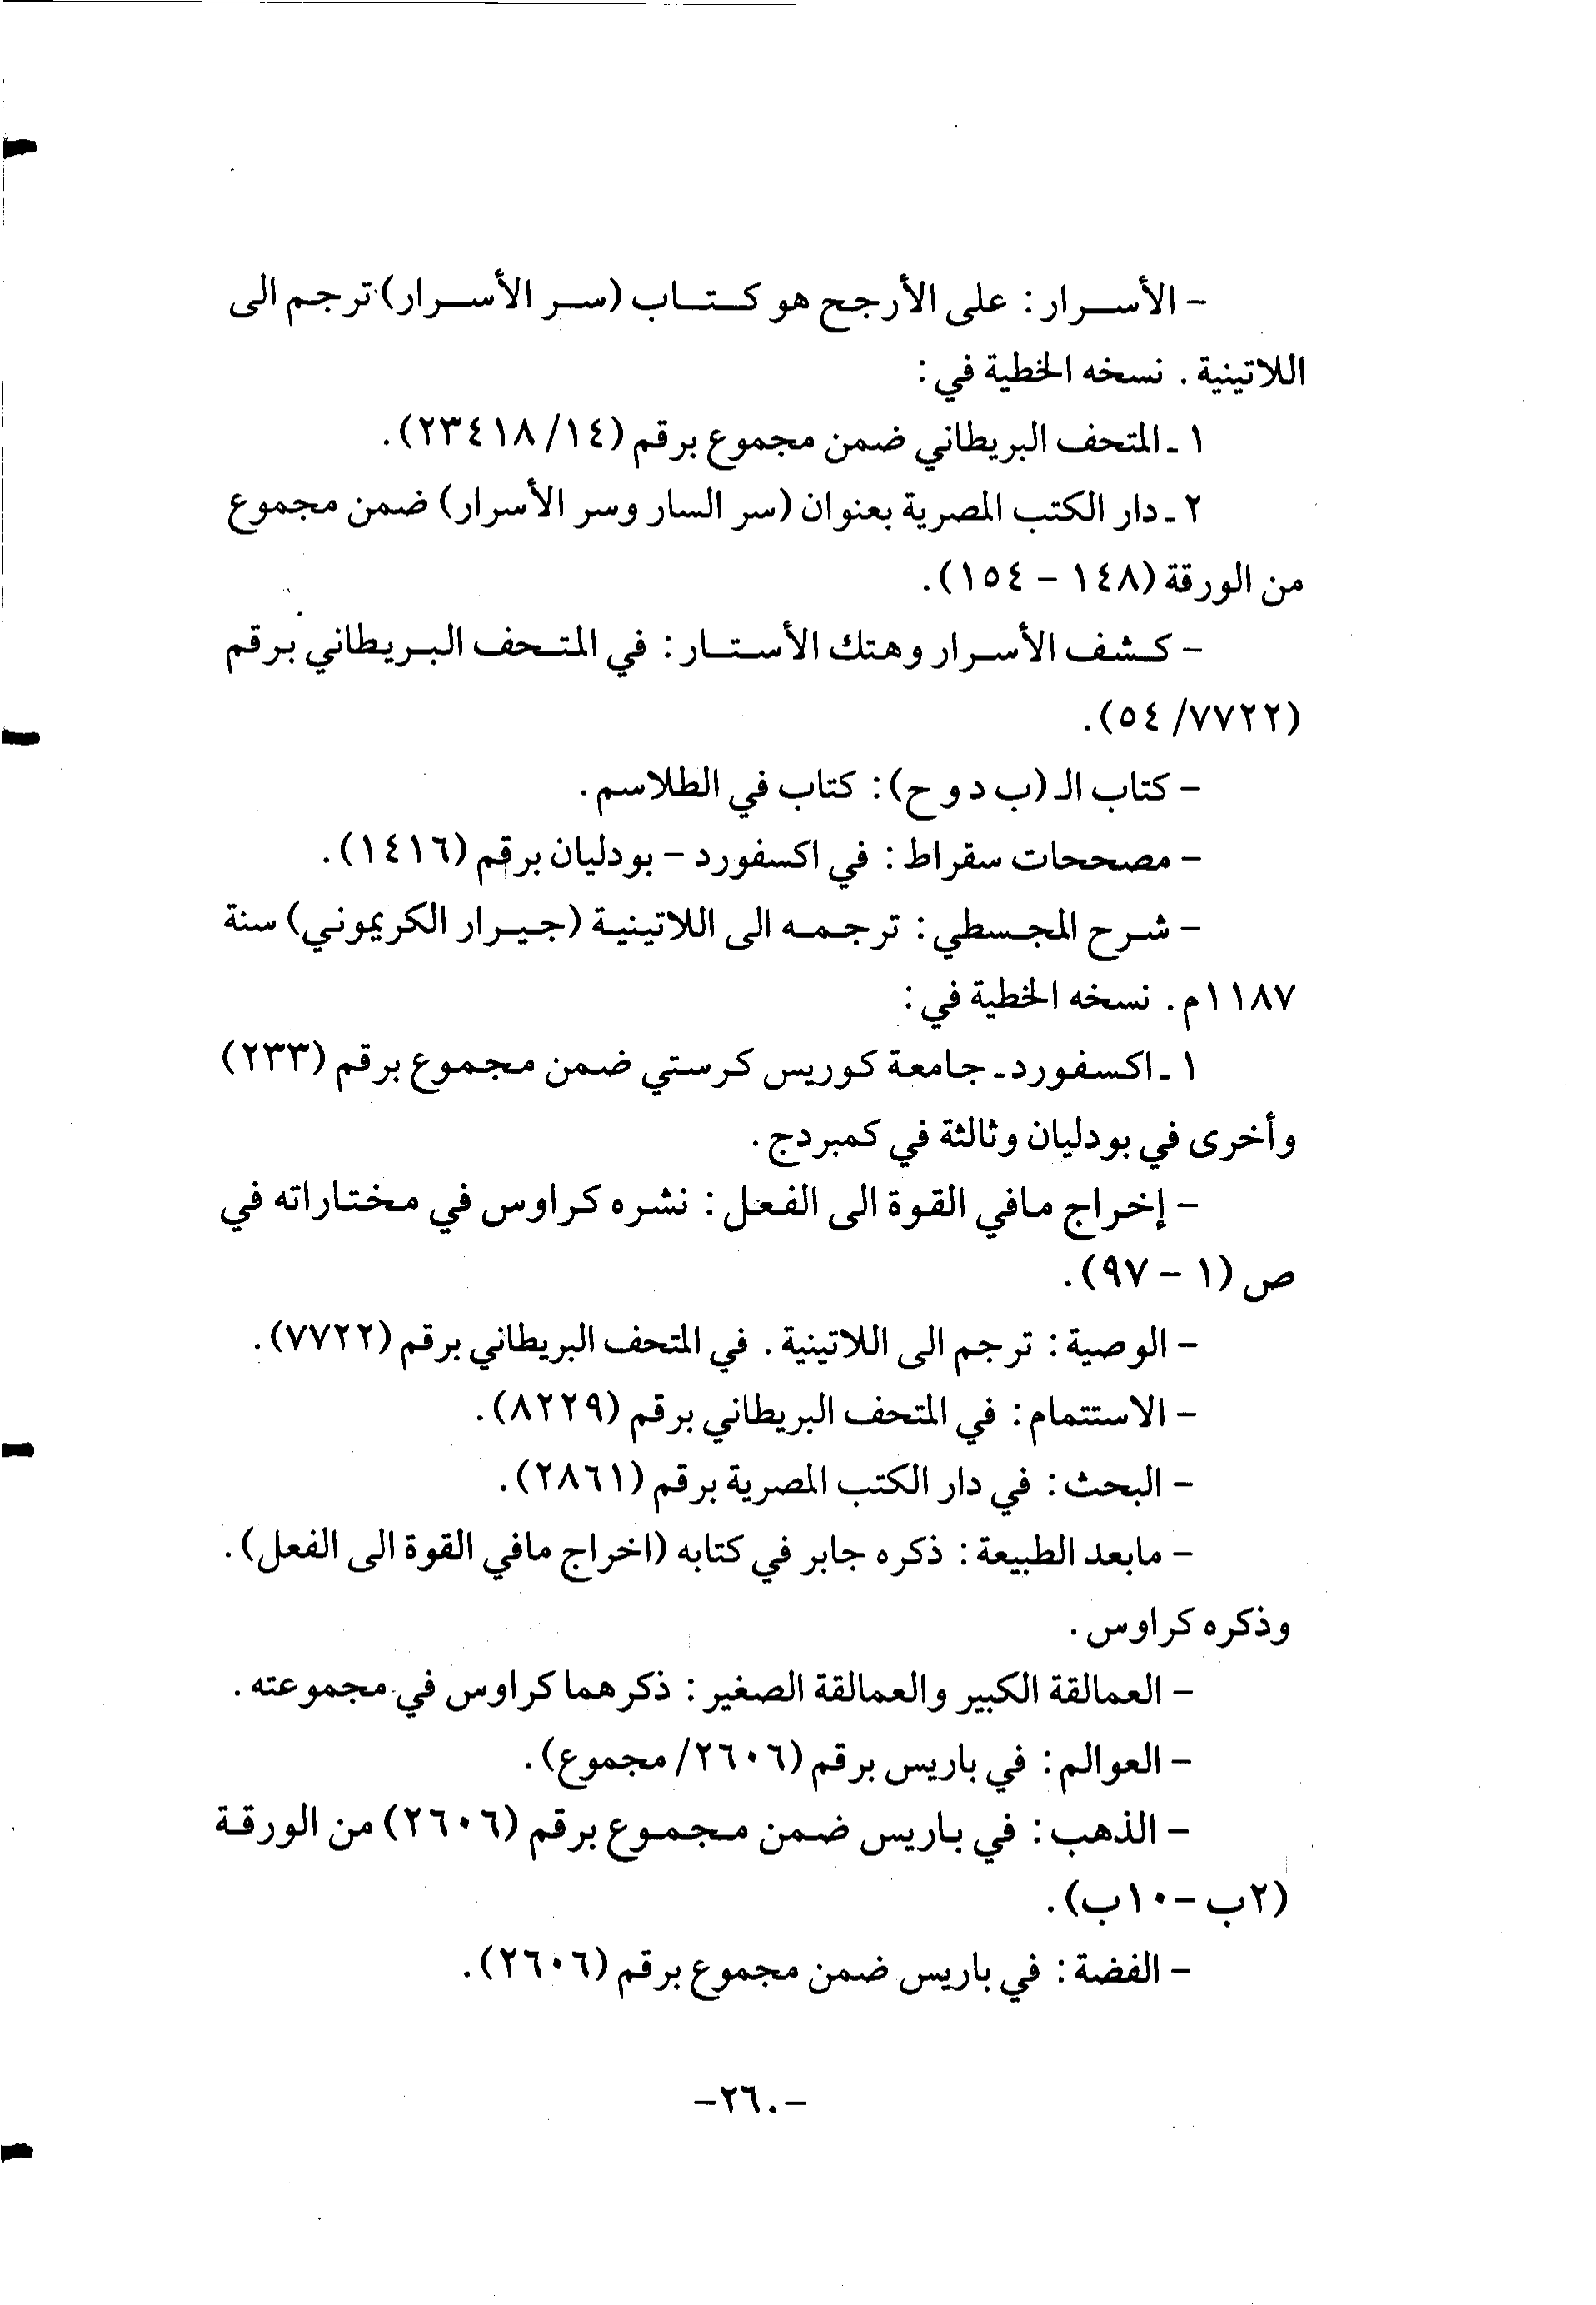 - الأسرار: على الأرجح هو كتاب (سر الأسرار) ترجم الى
اللاتينية. نسخه الخطية في:
١ ـ المتحف البريطاني ضمن مجموع برقم (٢٣٤١٨/١٤).
٢ ـ دار الكتب المصرية بعنوان (سر السار وسر الأسرار) ضمن مجموع
من الورقة (١٤٨ - ١٥٤).
- كشف الأسرار وهتك الأستار: في المتحف البريطاني برقم
(٥٤/٧٧٢٢).
- كتاب الـ (ب د و ح): كتاب في الطلاسم.
- مصححات سقراط: في اكسفورد - بودليان برقم (١٤١٦).
- شرح المجسطي: ترجمه الى اللاتينية (جيرار الكريموني) سنة
١١٨٧م. نسخه الخطية في:
١ ـ اكسفورد ـ جامعة كوريس كرستي ضمن مجموع برقم (٢٣٣)
وأخرى في بودليان وثالثة في كمبردج.
- إخراج مافي القوة الى الفعل: نشره كراوس في مختاراته في
ص (١ - ٩٧).
- الوصية: ترجم الى اللاتينية. في المتحف البريطاني برقم (٧٧٢٢).
- الاستتمام: في المتحف البريطاني برقم (٨٢٢٩).
- البحث: في دار الكتب المصرية برقم (٢٨٦١).
- مابعد الطبيعة: ذكره جابر في كتابه (اخراج مافي القوة الى الفعل).
وذكره كراوس.
- العمالقة الكبير والعمالقة الصغير: ذكرهما كراوس في مجموعته.
- العوالم: في باريس برقم (٢٦٠٦/ مجموع).
- الذهب: في باريس ضمن مجموع برقم (٢٦٠٦) من الورقة
(٢ب - ١٠ب).
- الفضة: في باريس ضمن مجموع برقم (٢٦٠٦).
-٢٦٠-